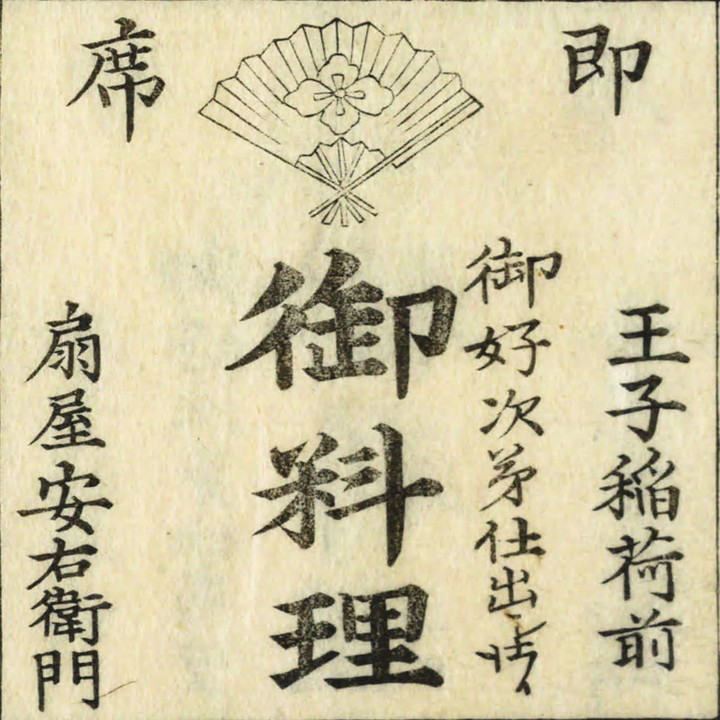 即席
王子稲荷前
御好次第仕出し仕候
御料理
扇屋安右衛門